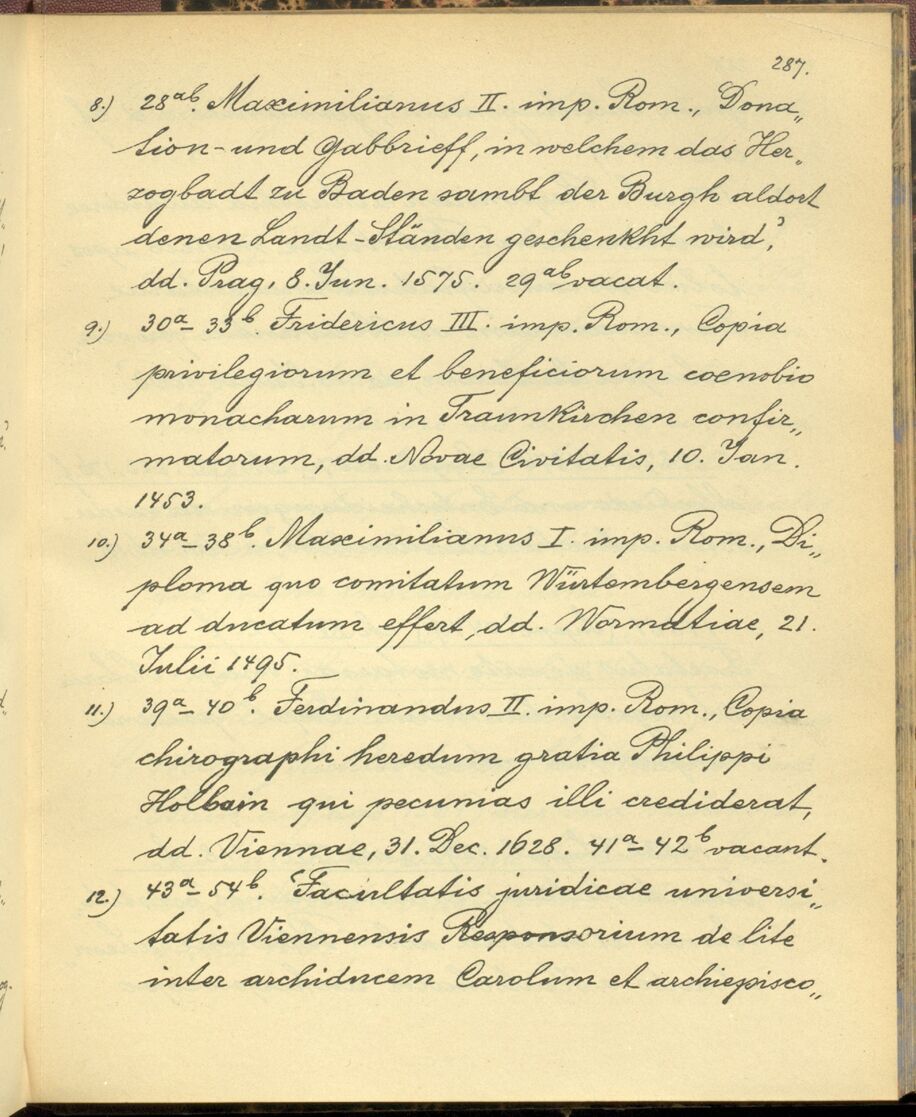 287.
8.) 28ab. Maximilianus II. imp. Rom., Dona„
tion- und Gabbrieff, in welchem das Her„
zogbadt zu Baden sambt der Burgh aldort
denen Landt-Ständen geschenkht wird',
dd. Prag, 8. Jun. 1575. 29ab vacat
9.) 30a–33b. Fridericus III. imp. Rom., Copia
privilegiorum et beneficiorum coenobio
monacharum in Traunkirchen confir„
matorum, dd. Novae Civitatis, 10. Jan.
1453.
10.) 34a–38b. Maximilianus I. imp. Rom., Di„
ploma quo comitatum Würtembergensem
ad ducatum effert, dd. Wormatiae, 21.
Julii 1495.
11.) 39a–40b. Ferdinandus II. imp. Rom., Copia
chirographi heredum gratia Philippi
Holbain qui pecunias illi crediderat,
dd. Viennae, 31. Dec. 1628. 41a–42b vacant.
12.) 43a–54b. 'Facultatis juridicae universi„
tatis Viennensis Responsorium de lite
inter archiducem Carolum et archiepisco„